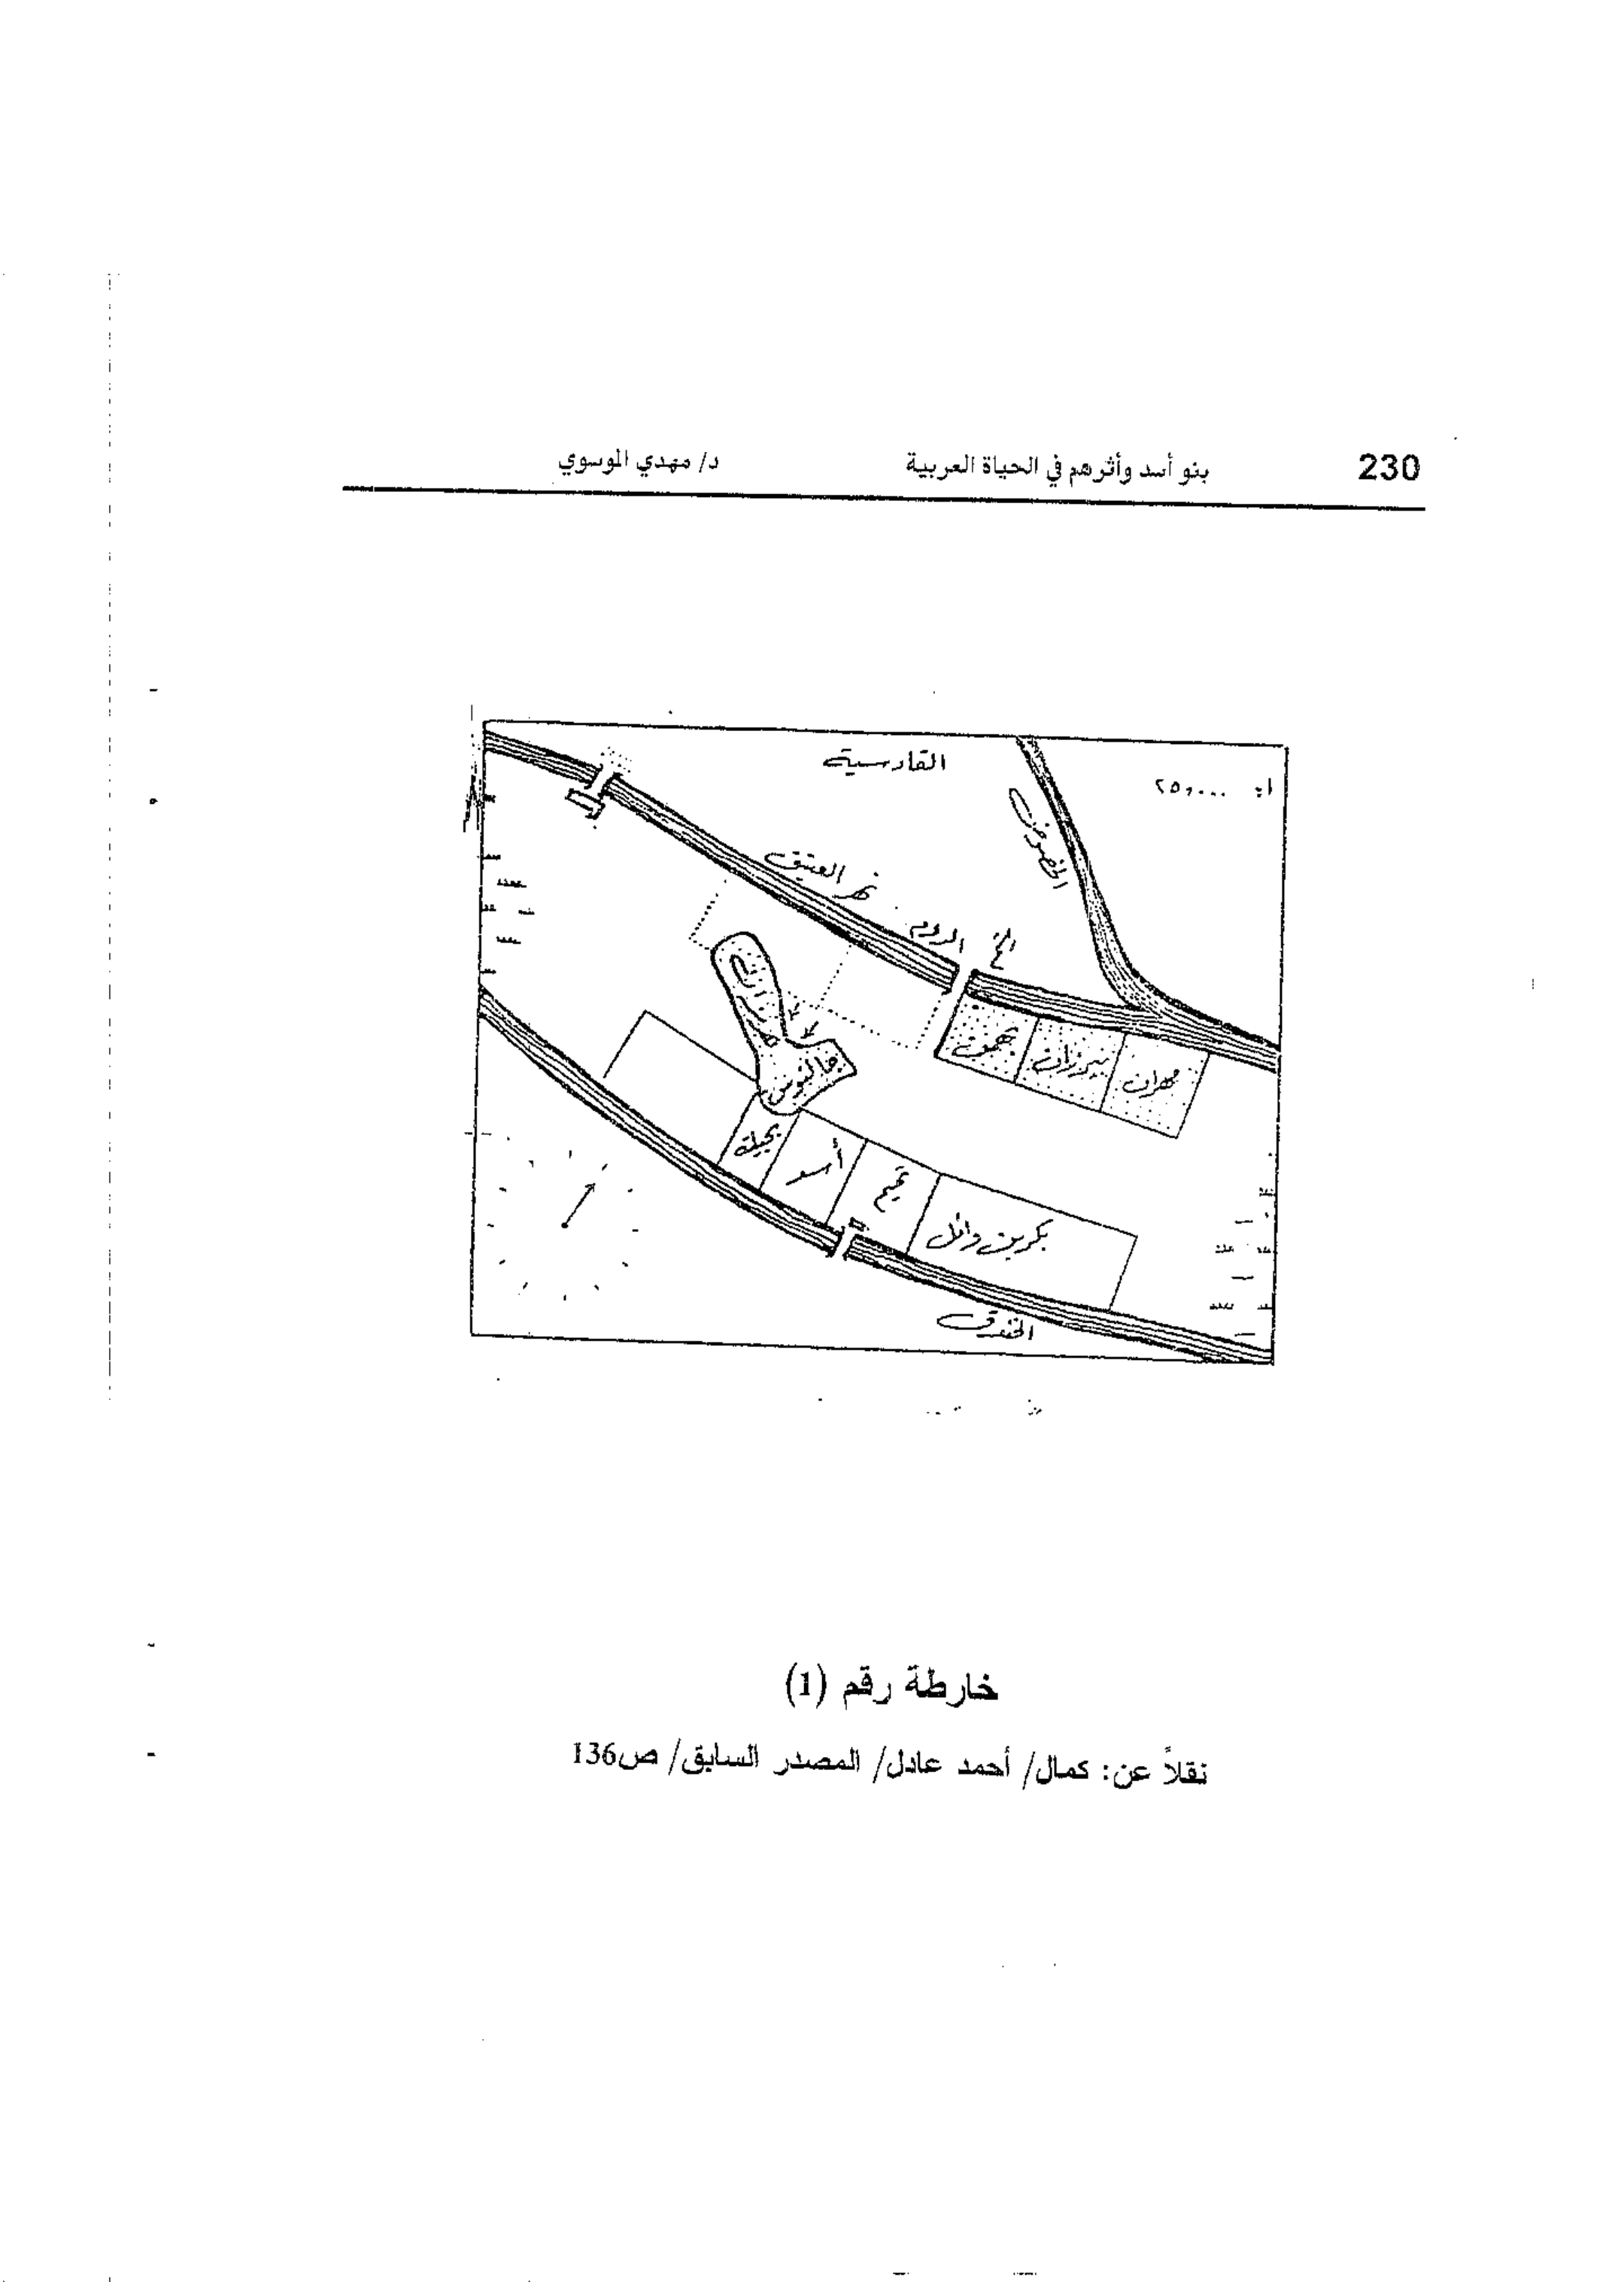 230 بنو أسد وأثرهم في الحياة العربية د/ مهدي الموسوي
القادسية
١: ٢٥٠٠٠٠
الخضوض
نهر العتيق
الردم
مهران
بيرزان
بهمن
جالينوس
بجيلة
أسد
تميم
بكر بن وائل
الخندق
خارطة رقم (1)
نقلاً عن: كمال/ أحمد عادل/ المصدر السابق/ ص136